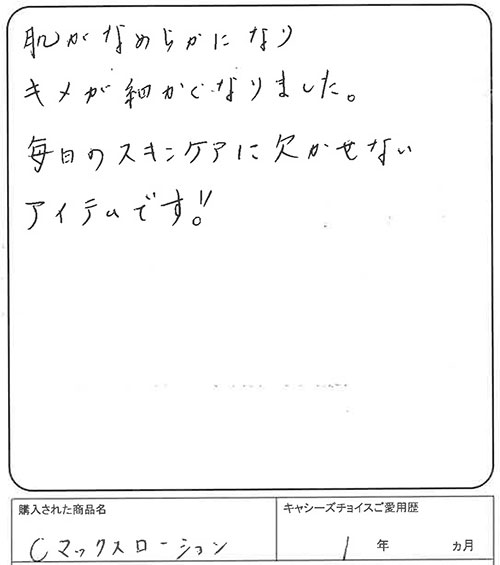 肌がなめらかになり
キメが細かくなりました。
毎日のスキンケアに欠かせない
アイテムです!!
購入された商品名
キャシーズチョイスご愛用歴
Cマックスローション
1 年 ヵ月